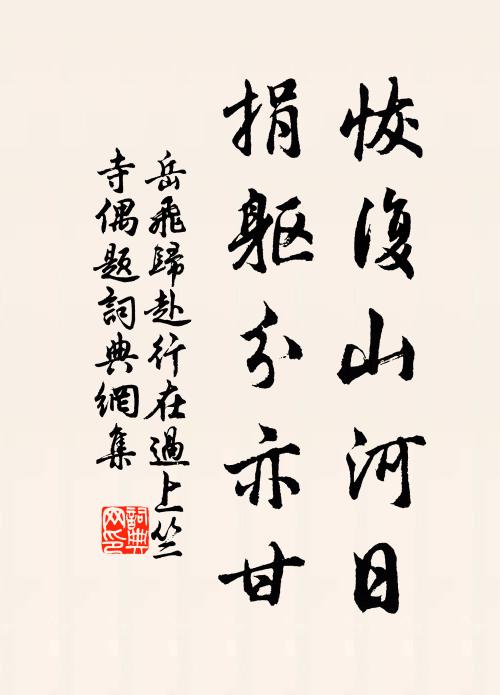 恢復山河日
捐軀分亦甘
岳飛歸赴行在過上竺
寺偶題詞典網集
詞典
网印